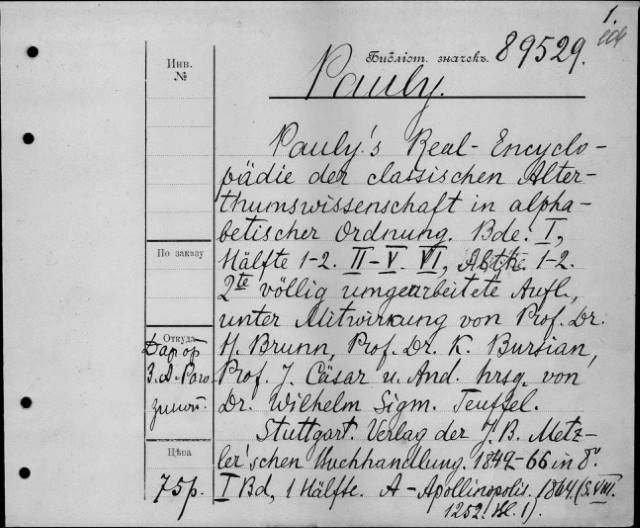 1.
Инв.
№
Библіот. значекъ. 89529.
Pauly.
Pauly's Real-Encyclo-
pädie der classischen Alter-
thumswissenschaft in alpha-
betischer Ordnung. Bde. I,
Hälfte 1-2. II-V. VI, 1-2.
2te völlig umgearbeitete Aufl.,
unter Mitwirkung von Prof. Dr.
H. Brunn, Prof. Dr. K. Bursian,
Prof. J. Cäsar u. And. hrsg. von
Dr. Wilhelm Sigm. Teuffel.
Stuttgart. Verlag der J. B. Metz-
ler'schen Buchhandlung. 1842-66 in 8°.
I Bd, 1 Hälfte. A-Apollinopolis. 1864. (S. VIII.
1252. 1).
По заказу
Откуда
Даръ отъ
З. А. Раго
зиной.
Цѣна
75р.